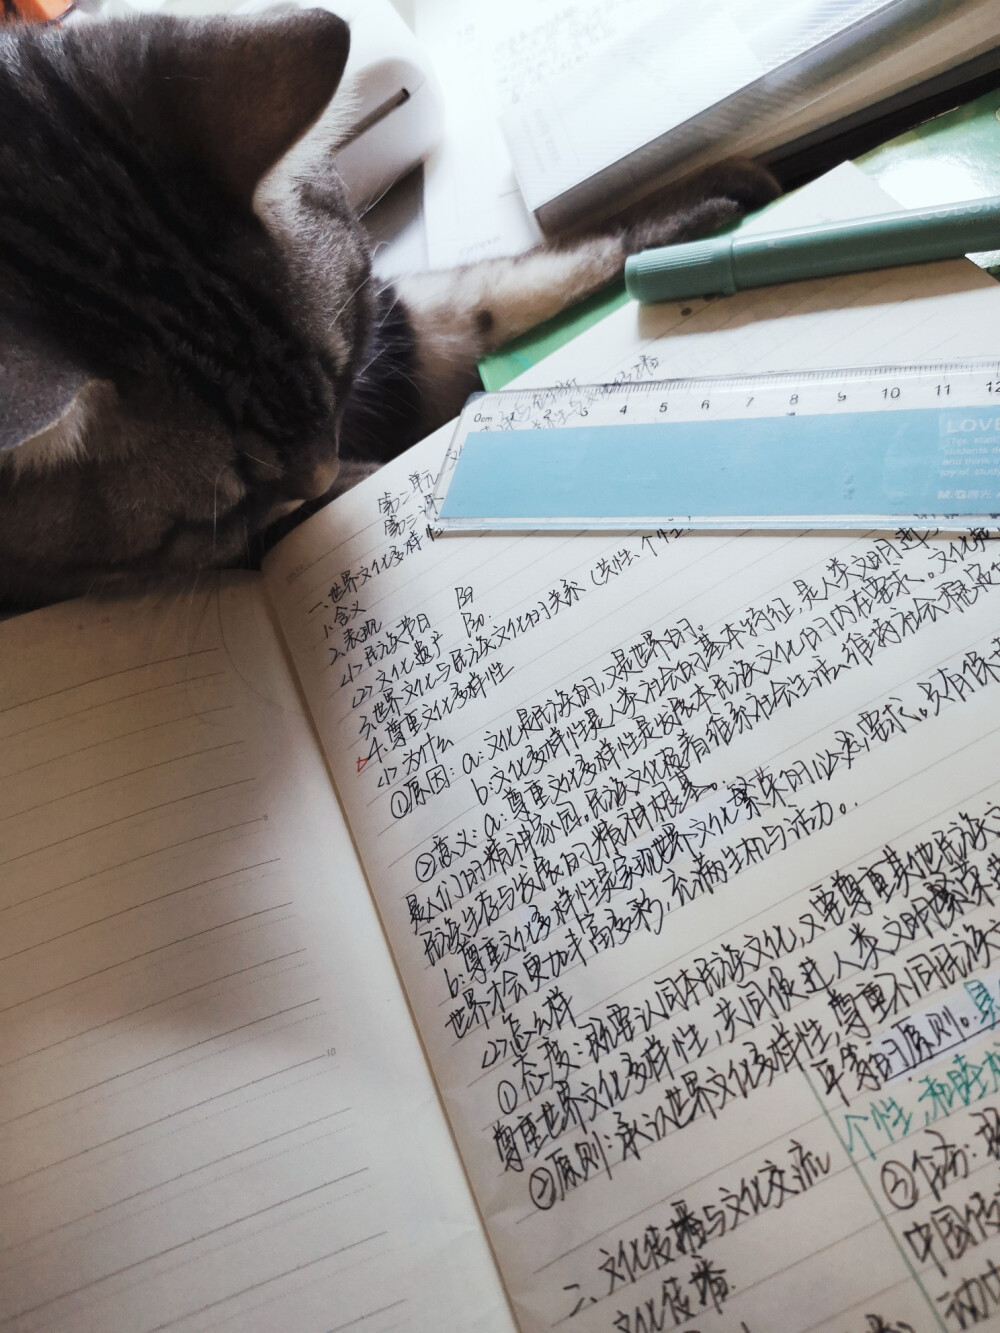 COLOR
0cm 1 2 3 4 5 6 7 8 9 10 11 12
LOVE
M&G晨光
第二单元 文
第三课
一、世界文化多样性
1、含义
2、表现
(1) 民族节日
(2) 文化遗产
3、世界文化与民族文化的关系(共性、个性
4、尊重文化多样性
(1) 为什么
①原因:a:文化是民族的,又是世界的。
b:文化多样性是人类社会的基本特征,是人类文明进
②意义:a:尊重文化多样性是发展本民族文化的内在要求。文化
是人们的精神家园。民族文化起着维系社会生活、维持社会稳定的
民族生存与发展的精神根基。
b:尊重文化多样性是实现世界文化繁荣的必然要求。只有保
世界才会更加丰富多彩,充满生机与活力。
(2) 怎么样
①态度:既要认同本民族文化,又要尊重其他民族文
尊重世界文化多样性,共同促进人类文明繁荣
②原则:承认世界文化多样性,尊重不同民族
平等的原则。
个性,和睦
二、文化传播与文化交流
文化传播
③
中国传